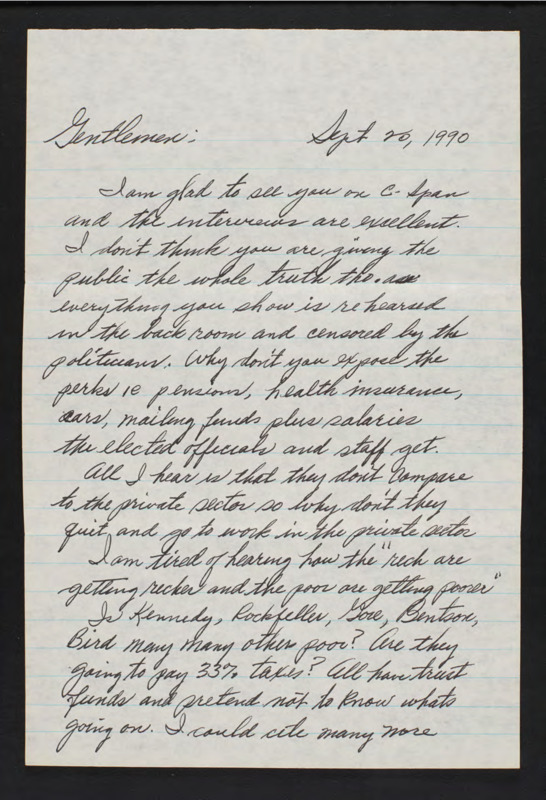 Gentlemen: Sept 20, 1990
I am glad to see you on C-Span
and the interviews are excellent.
I don't think you are giving the
public the whole truth tho. as
everything you show is rehearsed
in the back room and censored by the
politicians. Why don't you expose the
perks ie pensions, health insurance,
cars, mailing funds plus salaries
the elected officials and staff get.
All I hear is that they don't compare
to the private sector so why don't they
quit and go to work in the private sector
I am tired of hearing how the "rech are
getting recher and the poor are getting poorer"
Is Kennedy, Rockfeller, Gore, Bentson,
Bird many many other poor? Are they
going to pay 33% taxes? All have trust
funds and pretend not to know whats
going on. I could cite many more